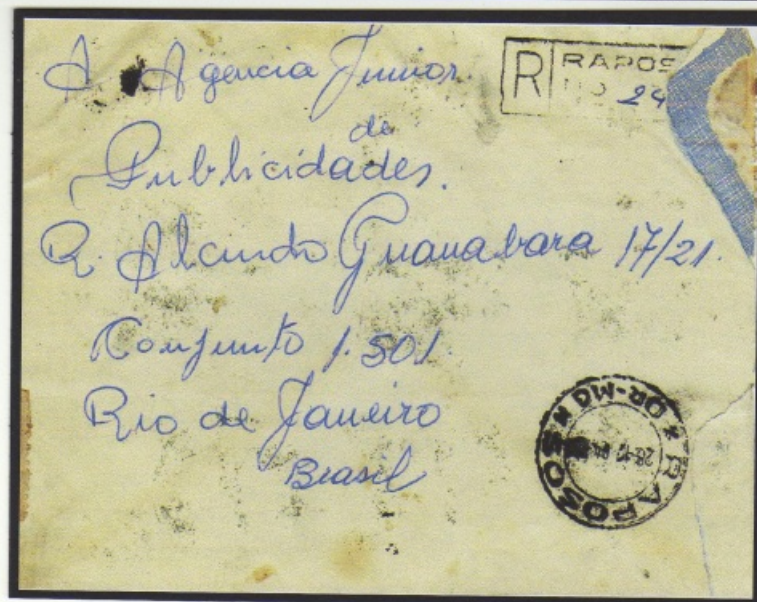 A Agencia Junior
de
Publicidades.
R. Alcindo Guanabara 17/21.
Conjunto 1.501.
Rio de Janeiro
Brasil
R RAPOS
NO 24
RAPOSOS * DR-MG *